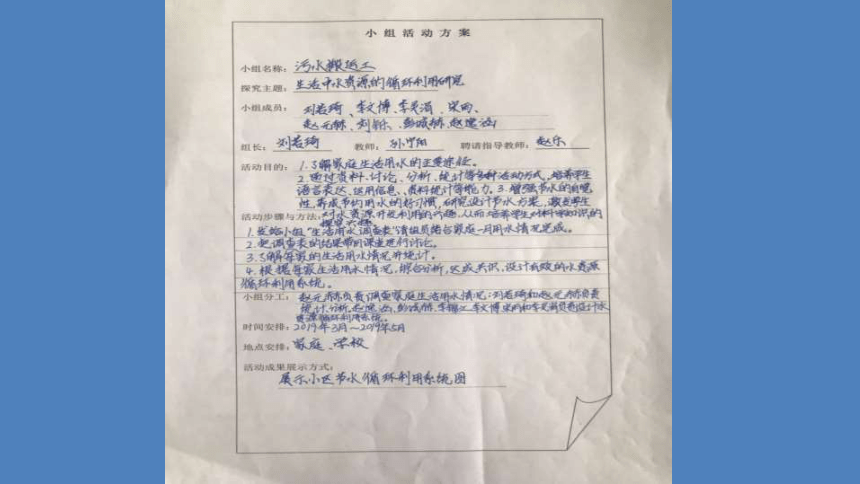 小组活动方案
小组名称：污水搬运工
探究主题：生活中水资源的循环利用研究
小组成员：刘若琦、李文博、李芙涓、宋雨、
赵元赫、刘铄、赵逸涵
组长：刘若琦 教师：孙宁阳 聘请指导教师：赵乐
活动目的：1.了解家庭生活用水的主要途径。
2.通过资料、讨论、分析、统计等多种活动方式，培养学生
语言表达、运用信息、资料统计等能力。3.增强节水的自觉
性，养成节约用水的好习惯，研究设计节水方案，激发学生
活动步骤与方法：对水资源开发利用的兴趣，从而培养学生对科学知识的
探究兴趣。
1.发给小组“生活用水调查表”请组员结合家庭一月用水情况完成。
2.把调查表的结果带到课堂进行讨论。
3.了解每家的生活用水情况并统计。
4.根据每家生活用水情况，综合分析，达成共识，设计高效的水资源
循环利用系统。
小组分工：赵元赫负责调查家庭生活用水情况；刘若琦和赵元赫负责
统计、分析，赵逸涵、李文博、宋雨和李芙涓负责设计水
资源循环利用系统。
时间安排：2019年3月～2019年5月
地点安排：家庭、学校
活动成果展示方式：
展示小区节水循环利用系统图